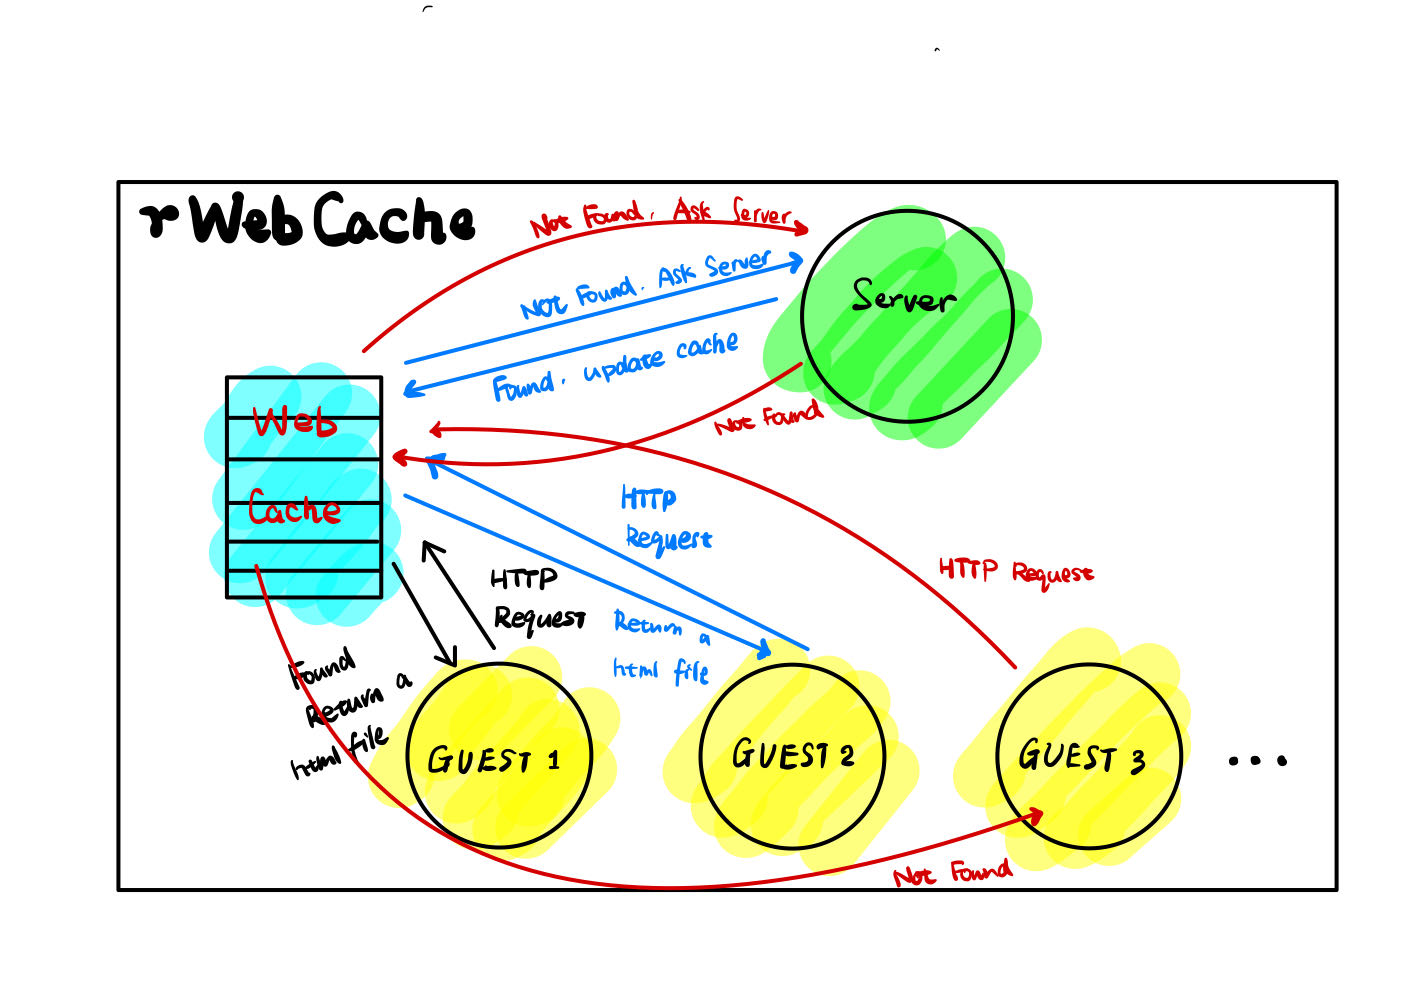 r Web Cache
Not Found. Ask Server
Not Found. Ask Server
Found. update cache
Server
Not Found
Web
Cache
HTTP
Request
HTTP
Request
HTTP Request
Return a
html file
Found
Return a
html file
GUEST 1
GUEST 2
GUEST 3
...
Not Found